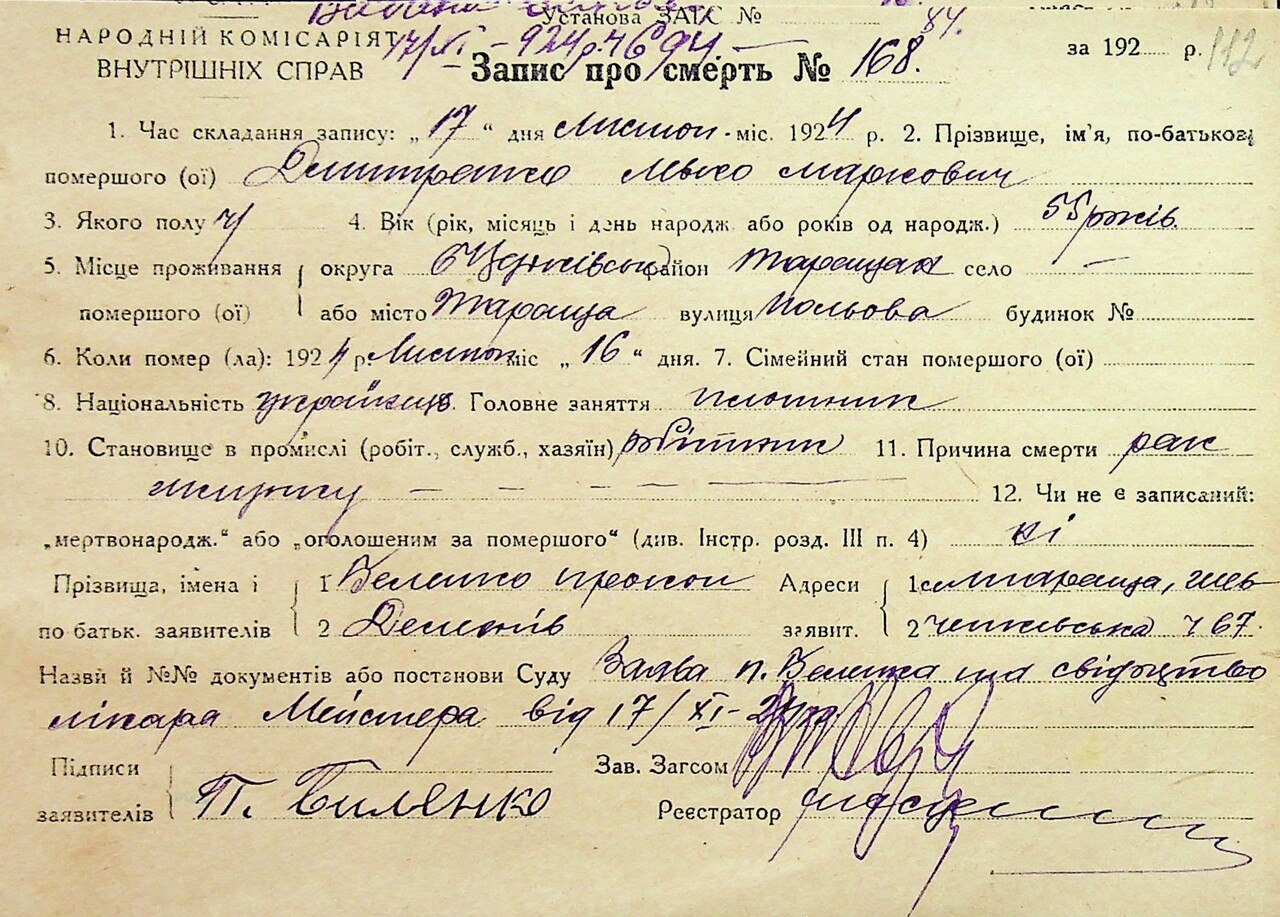 Установа ЗАГС №
НАРОДНІЙ КОМІСАРІЯТ 17/XI – 924 р. 4694. 84.
ВНУТРІШНІХ СПРАВ Запис про смерть № 168. за 192 р. 112
1. Час складання запису: „17“ дня листоп. міс. 1924 р. 2. Прізвище, ім'я, по-батькові
помершого (ої) Дмитренко Маркович
3. Якого полу ч 4. Вік (рік, місяць і день народж або років од народж.) 55 років.
5. Місце проживання округа Б Церківськ район Таращан село —
помершого (ої) або місто Тараща вулиця Польова будинок №
6. Коли помер (ла): 1924 р. Листоп міс „16“ дня. 7. Сімейний стан помершого (ої)
8. Національність українць. Головне заняття плотник
10. Становище в промислі (робіт., служб., хазяїн) робітник 11. Причина смерти рак
— — — — — 12. Чи не є записаний:
„мертвонародж.“ або „оголошеним за помершого“ (див. Інстр. розд. III п. 4) ні
Прізвища, імена і 1 Беленко Прокоп Адреси 1 м Тараща, Шев
по батьк. заявителів 2 заявит. 2 ченківська ч 67.
Назви й №№ документів або постанови Суду Заява п. Беленка та свідоцтво
лікара Мейстера від 17/XI–24 р.
Підписи Зав. Загсом
заявителів П. Биленко Реєстратор